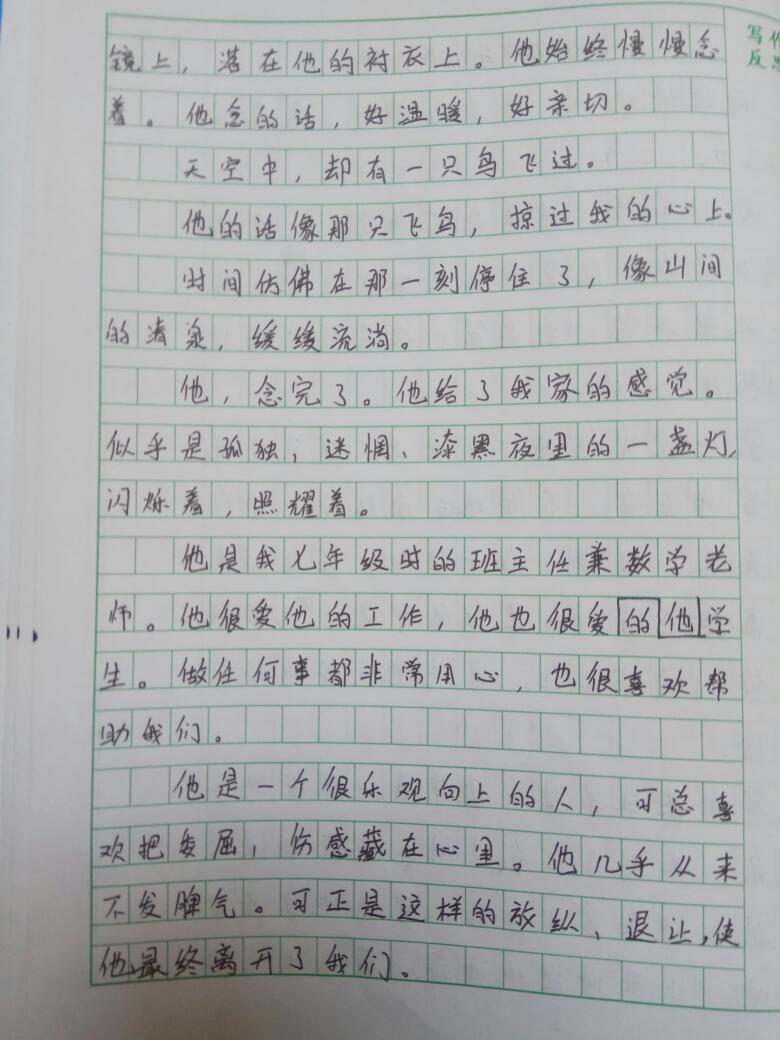 写作
反思
镜上，落在他的衬衣上。他始终慢慢念
着。他念的话，好温暖，好亲切。
天空中，却有一只鸟飞过。
他的话像那只飞鸟，掠过我的心上。
时间仿佛在那一刻停住了，像山间
的清泉，缓缓流淌。
他，念完了。他给了我家的感觉。
似乎是孤独、迷惘、漆黑夜里的一盏灯，
闪烁着，照耀着。
他是我七年级时的班主任兼数学老
师。他很爱他的工作，他也很爱的他学
生。做任何事都非常用心，也很喜欢帮
助我们。
他是一个很乐观向上的人，可总喜
欢把委屈，伤感藏在心里。他几乎从来
不发脾气。可正是这样的放纵、退让，使
他最终离开了我们。